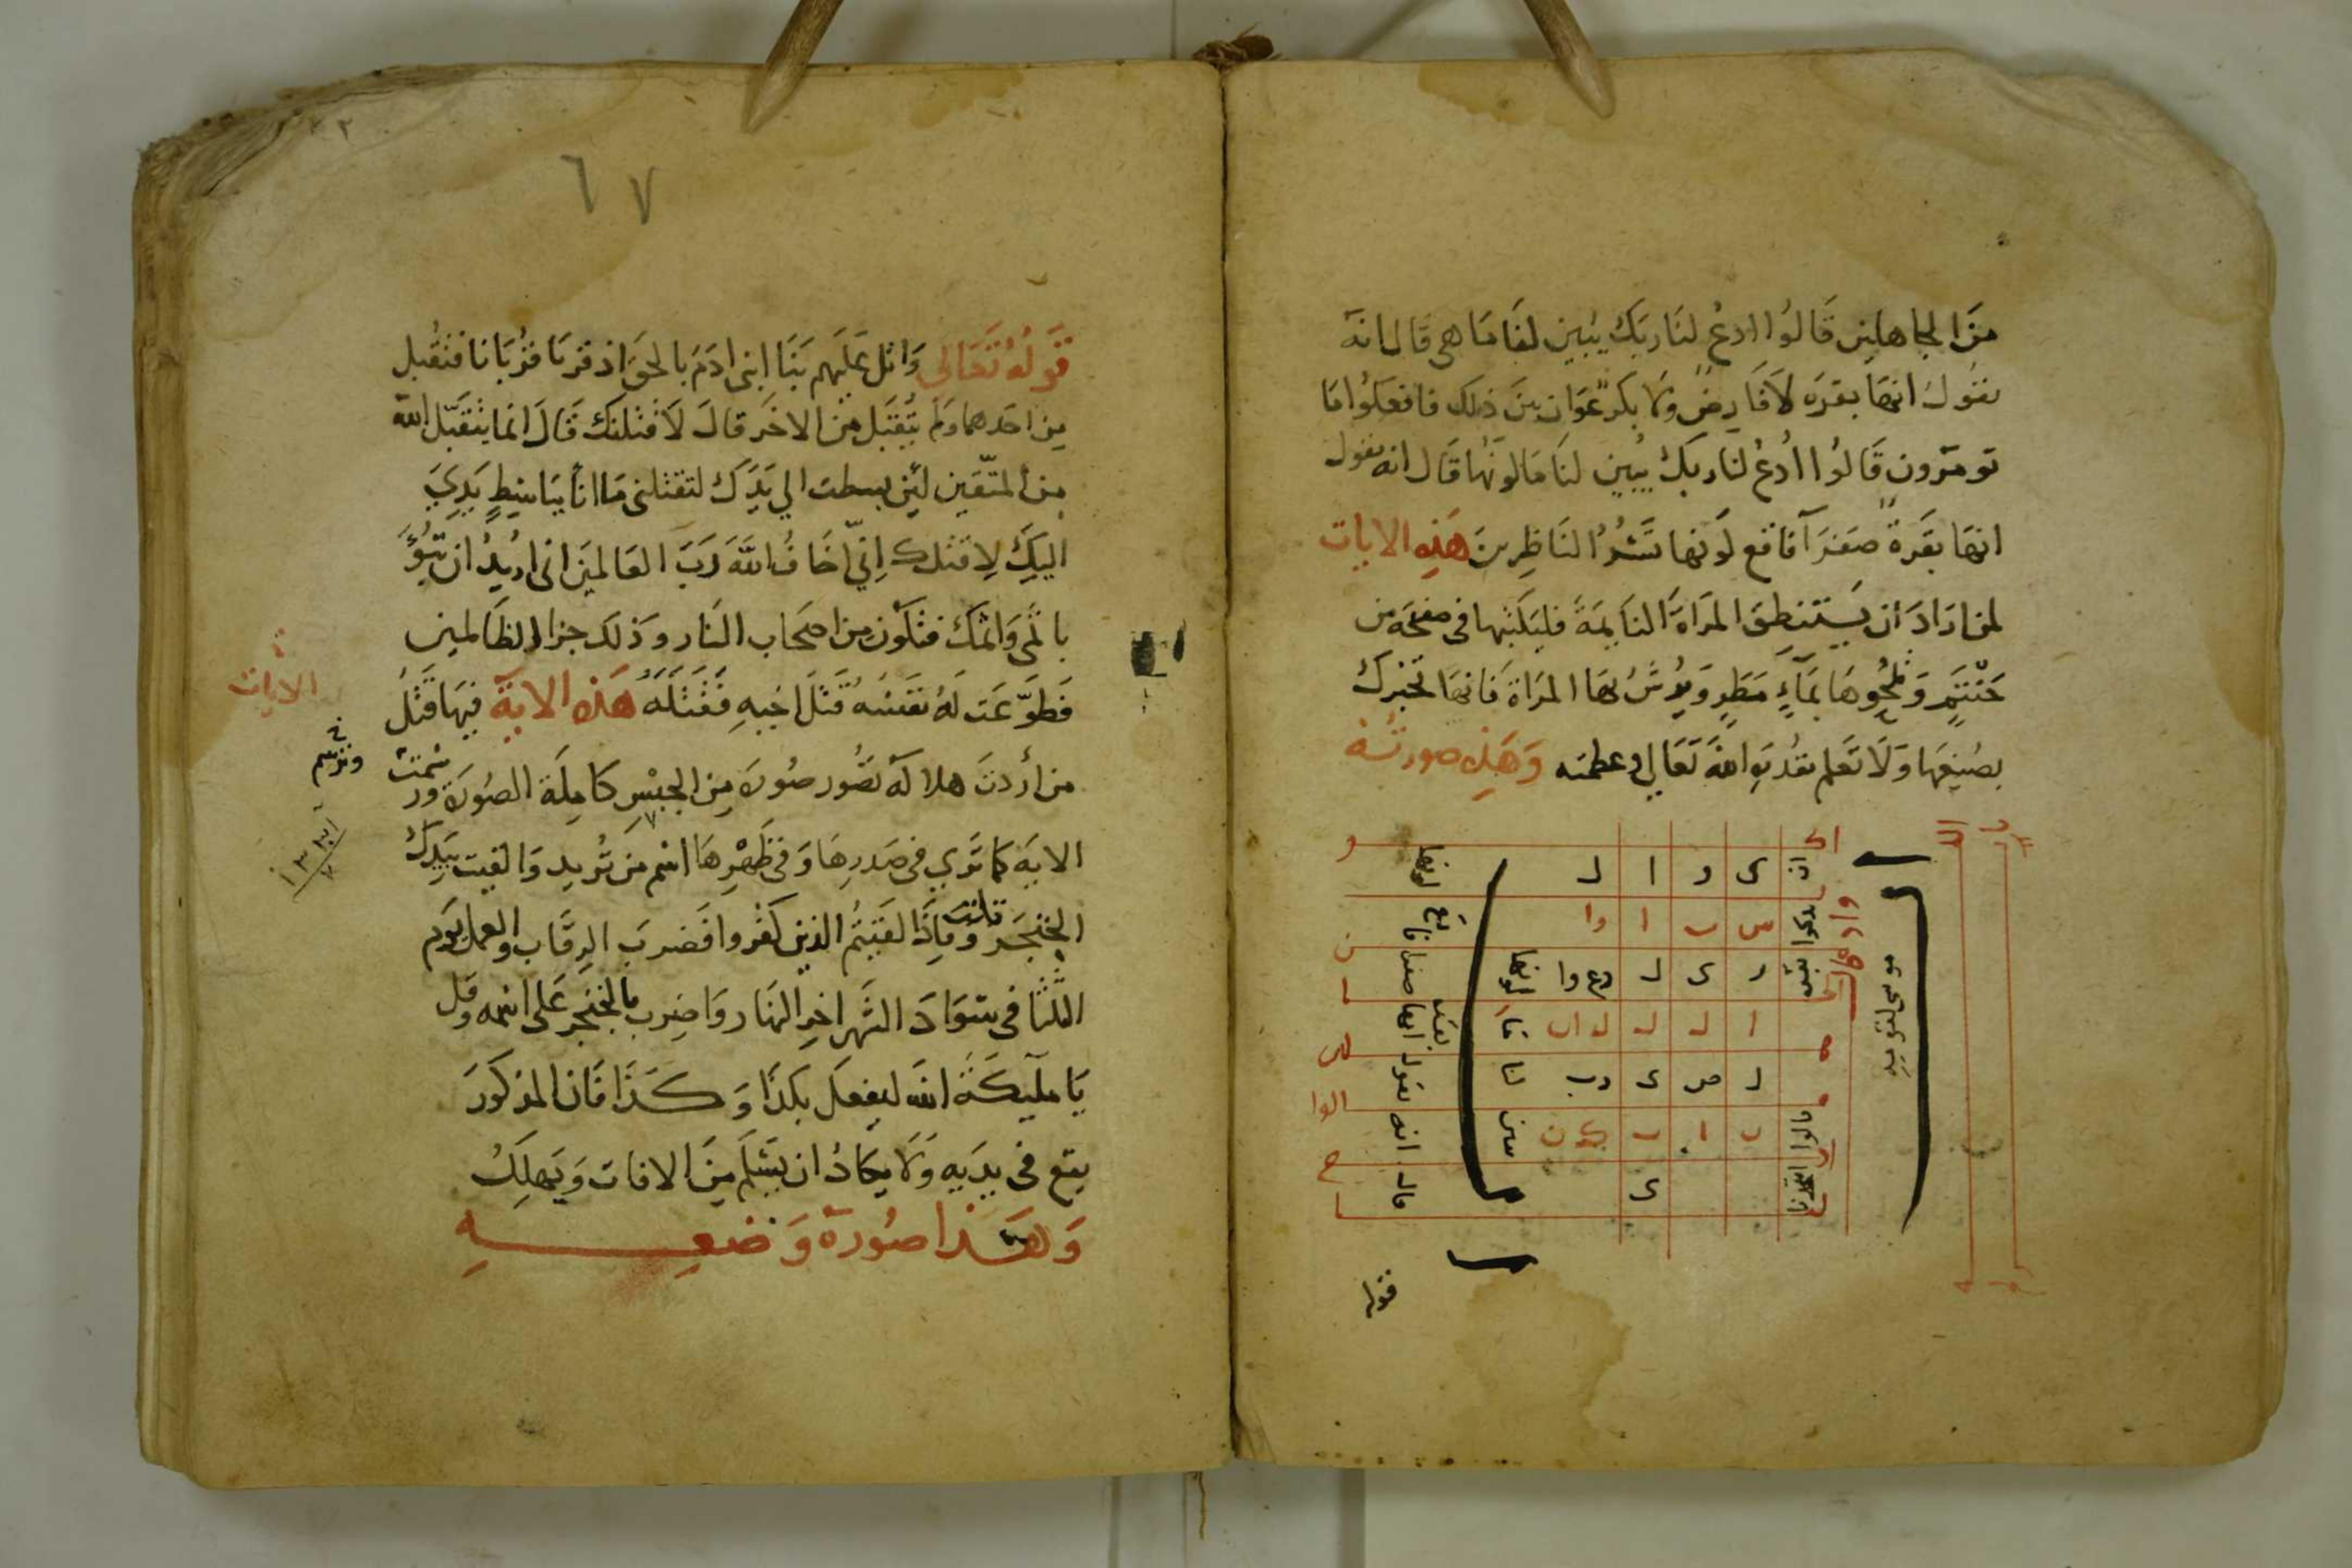 من الجاهلين قالوا ادع لنا ربك يبين لنا ما هى قال انه
يقول انها بقره لا فارض ولا بكر عوان بين ذلك فافعلوا ما
تومرون قالوا ادع لنا ربك يبين لنا ما لونها قال انه يقول
انها بقرة صفرآ فاقع لونها تسر الناظرين هذه الايات
لمن اراد ان يستنطق المراة النايمة فليكتبها فى صفحه من
حنتم ويمحوها بمآء مطر ويرش بها المراة فانها تخبرك
بصنيعها ولا تعلم بقدرة الله تعالى وعظمته وهذه صورته
موسى لقومه
ى و ا ل
س ب ا وا
ر ى ل دع وا
ا ل ل
ل ص ى رب
ب ا ب
ى
قال انه يقول انها صفرا فاقع لونها
قوله
٦٧
قوله تعالى واتل عليهم نبا ابنى ادم بالحق اذ قربا قربانا فتقبل
من احدهما ولم يتقبل من الاخر قال لاقتلنك قال انما يتقبل الله
من المتقين لئن بسطت الي يدك لتقتلنى ما انا بباسط يدي
اليك لاقتلك اني اخاف الله رب العالمين انى اريد ان تبوء
باثمى واثمك فتكون من اصحاب النار وذلك جزاء الظالمين
فطوعت له نفسه قتل اخيه فقتله هذه الاية فيها قتل
الايات
من أردت هلاكه تصور صوره من الجبس كاملة الصورة
وترسم
الايه كما تري فى صدرها وفى ظهرها اسم من تريد والقيت بيدك
الخنجر وقلت فاذا لقيتم الذين كفروا فضرب الرقاب والعمل يوم
الثلثا فى سواد الشهر اخر النهار واضرب بالخنجر على اسمه وقل
يا مليكة الله ليفعل بكذا وكذا فان المذكور
يقع فى يديه ولا يكاد ان يسلم من الافات ويهلك
وهذا صورة وضعه